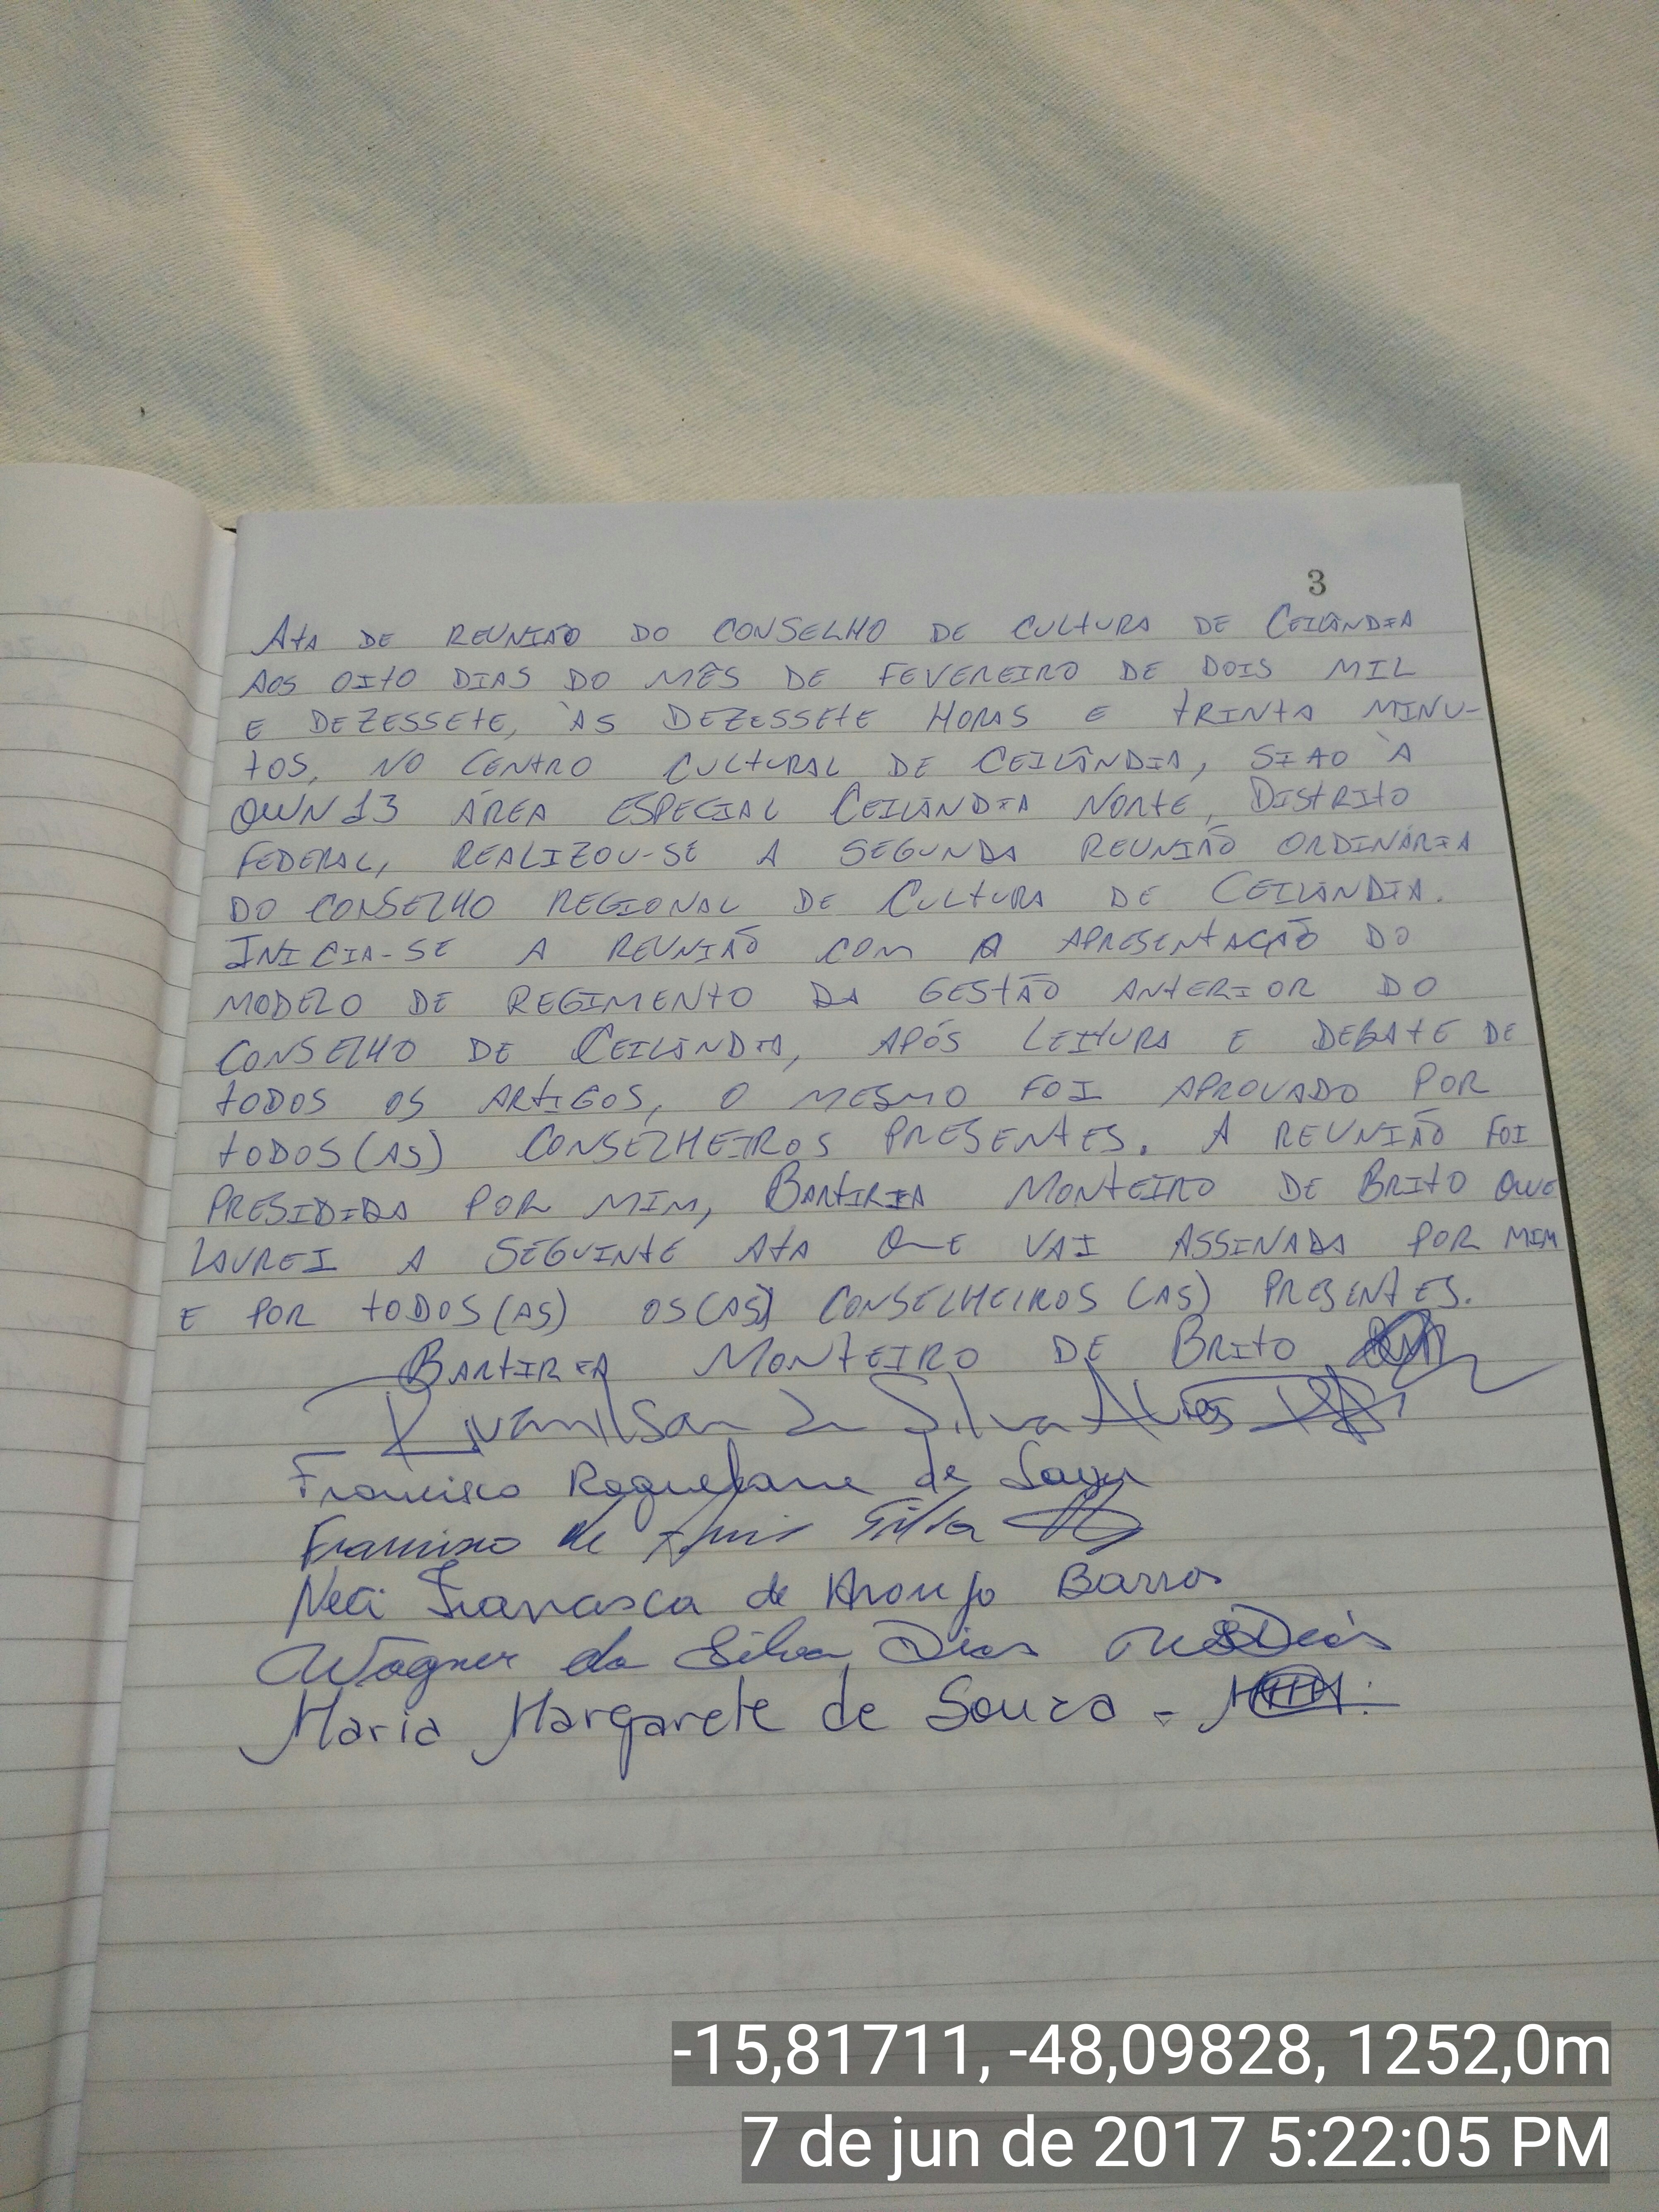 3
Ata de reunião do Conselho de Cultura de Ceilândia
aos oito dias do mês de fevereiro de dois mil
e dezessete, às dezessete horas e trinta minu-
tos, no Centro Cultural de Ceilândia, sito à
QNN 13 Área Especial Ceilândia Norte, Distrito
Federal, realizou-se a segunda reunião ordinária
do Conselho Regional de Cultura de Ceilândia.
Inicia-se a reunião com a apresentação do
modelo de regimento da gestão anterior do
Conselho de Ceilândia, após leitura e debate de
todos os artigos, o mesmo foi aprovado por
todos(as) conselheiros presentes. A reunião foi
presidida por mim, Bartiria Monteiro de Brito que
lavrei a seguinte ata que vai assinada por mim
e por todos(as) os(as) conselheiros (as) presentes.
Bartiria Monteiro de Brito
Rivanilson da Silva Alves
Francisco de
Francisco de Silva
Neci Francisca de Araujo Barros
Wagner da Silva Dias
Maria Margarete de Souza -
-15,81711, -48,09828, 1252,0m
7 de jun de 2017 5:22:05 PM